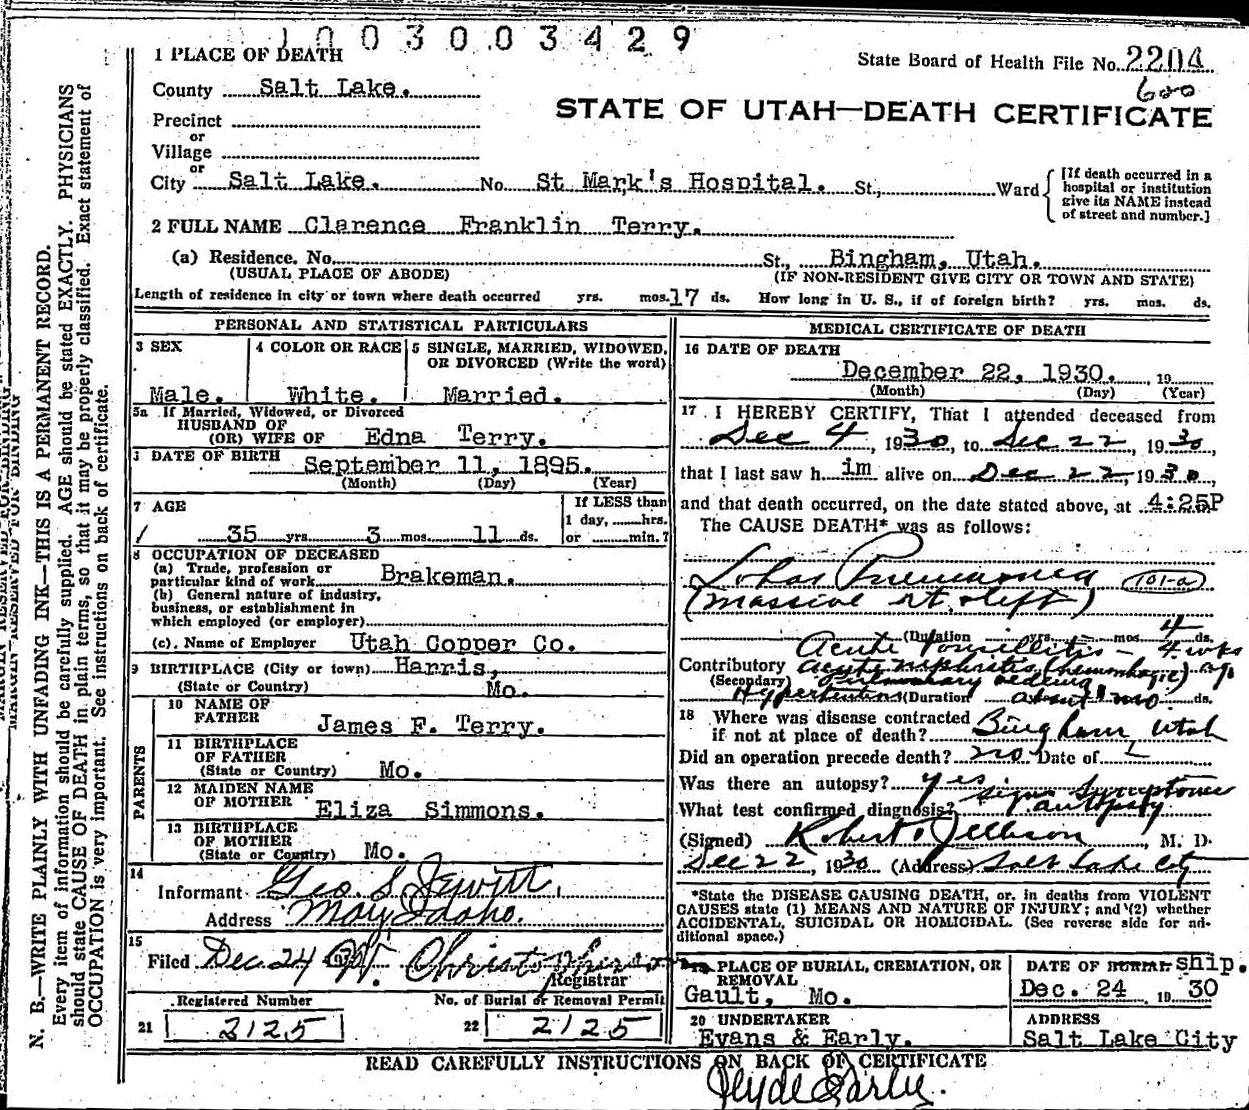 1003003429
1 PLACE OF DEATH
State Board of Health File No. 2204
600
County Salt Lake.
STATE OF UTAH—DEATH CERTIFICATE
Precinct
or
Village
or
City Salt Lake. No. St Mark's Hospital. St., Ward
[If death occurred in a
hospital or institution
give its NAME instead
of street and number.]
2 FULL NAME Clarence Franklin Terry.
(a) Residence. No. St., Bingham, Utah.
(USUAL PLACE OF ABODE) (IF NON-RESIDENT GIVE CITY OR TOWN AND STATE)
Length of residence in city or town where death occurred yrs. mos. 17 ds. How long in U. S., if of foreign birth? yrs. mos. ds.
PERSONAL AND STATISTICAL PARTICULARS
3 SEX
Male.
4 COLOR OR RACE
White.
5 SINGLE, MARRIED, WIDOWED,
OR DIVORCED (Write the word)
Married.
5a If Married, Widowed, or Divorced
HUSBAND OF
(OR) WIFE OF Edna Terry.
DATE OF BIRTH
September 11, 1895.
(Month) (Day) (Year)
7 AGE
35 yrs. 3 mos. 11 ds.
If LESS than
1 day, hrs.
or min.?
8 OCCUPATION OF DECEASED
(a) Trade, profession or
particular kind of work Brakeman.
(b) General nature of industry,
business, or establishment in
which employed (or employer)
(c). Name of Employer Utah Copper Co.
9 BIRTHPLACE (City or town) Harris,
(State or Country) Mo.
PARENTS
10 NAME OF
FATHER James F. Terry.
11 BIRTHPLACE
OF FATHER
(State or Country) Mo.
12 MAIDEN NAME
OF MOTHER Eliza Simmons.
13 BIRTHPLACE
OF MOTHER
(State or Country) Mo.
14
Informant Geo. S. Jewitt,
Address May, Idaho.
15
Filed Dec. 24 W. Christopherson
Registrar
Registered Number
21 2125
No. of Burial or Removal Permit
22 2125
MEDICAL CERTIFICATE OF DEATH
16 DATE OF DEATH
December 22, 1930. , 19
(Month) (Day) (Year)
17 . I HEREBY CERTIFY, That I attended deceased from
Dec 4 , 1930, to Dec 22 , 1930
that I last saw h im alive on Dec 22, 1930,
and that death occurred, on the date stated above, at 4:25P
The CAUSE DEATH* was as follows:
Lobar Pneumonia 101-a
(massive rt. & left)
(Duration yrs. mos. 4 ds.
Acute Tonsillitis - 4 wks
Contributory acute nephritis (hemorrhagic) ago
(Secondary) Pulmonary oedema
Hypertension (Duration about 1 mo. ds.
18 Where was disease contracted
if not at place of death? Bingham, Utah
Did an operation precede death? no Date of
Was there an autopsy? yes
What test confirmed diagnosis? signs symptoms
autopsy
(Signed) Robert Jellison, M. D.
Dec 22, 1930 (Address) Salt Lake City
*State the DISEASE CAUSING DEATH, or, in deaths from VIOLENT
CAUSES state (1) MEANS AND NATURE OF INJURY; and (2) whether
ACCIDENTAL, SUICIDAL OR HOMICIDAL. (See reverse side for ad-
ditional space.)
19 PLACE OF BURIAL, CREMATION, OR
REMOVAL
Gault, Mo.
DATE OF BURIAL ship.
Dec. 24 19 30
20 UNDERTAKER
Evans & Early.
ADDRESS
Salt Lake City
READ CAREFULLY INSTRUCTIONS ON BACK OF CERTIFICATE
Clyde Early.
MARGIN RESERVED FOR BINDING
N. B.—WRITE PLAINLY WITH UNFADING INK—THIS IS A PERMANENT RECORD.
Every item of information should be carefully supplied. AGE should be stated EXACTLY. PHYSICIANS
should state CAUSE OF DEATH in plain terms, so that it may be properly classified. Exact statement of
OCCUPATION is very important. See instructions on back of certificate.